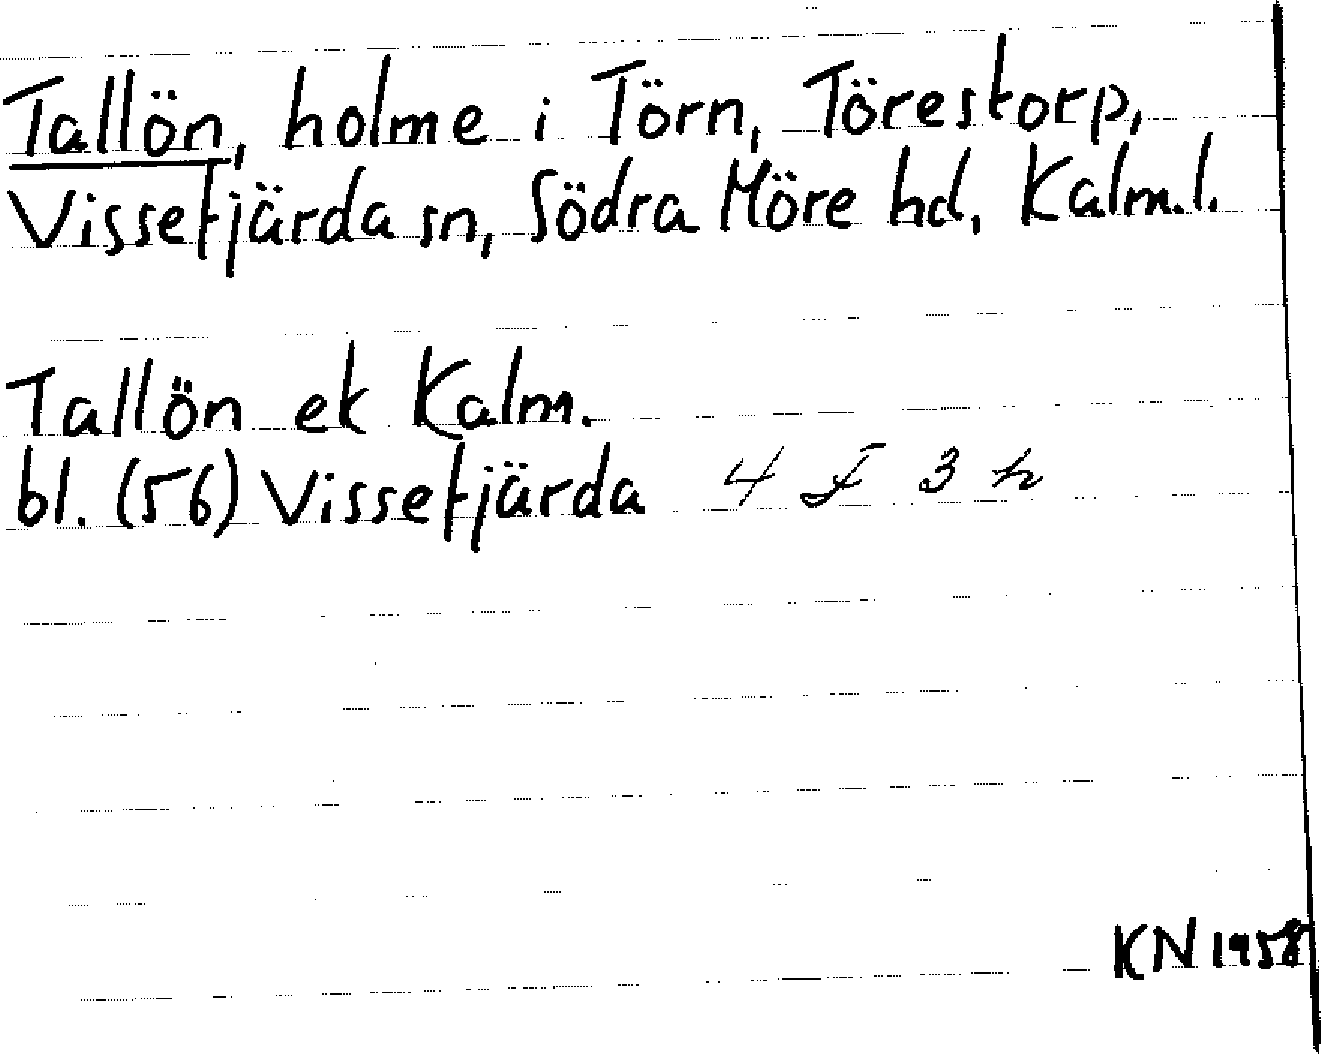 Tallön, holme i Törn, Törestorp,
Vissefjärda sn, Södra Möre hd, Kalm.l.
Tallön ek Kalm.
bl. (56) Vissefjärda 4 F 3 h
KN 1958